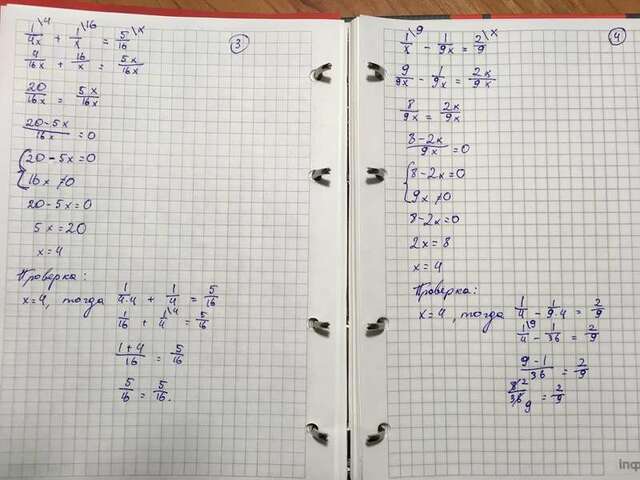 3
1/4x \4 + 1/x \16 = 5/16 \x
4/16x + 16/x = 5x/16x
20/16x = 5x/16x
20-5x/16x = 0
{20-5x=0
16x ≠0
20-5x=0
5x=20
x=4
Проверка:
x=4, тогда 1/4·4 + 1/4 = 5/16
1/16 + 1/4 \4 = 5/16
1+4/16 = 5/16
5/16 = 5/16.
4
1/x \9 - 1/9x = 2/9 \x
9/9x - 1/9x = 2x/9x
8/9x = 2x/9x
8-2x/9x = 0
{8-2x=0
9x ≠0
8-2x=0
2x=8
x=4
Проверка:
x=4, тогда 1/4 - 1/9·4 = 2/9
1/4 \9 - 1/36 = 2/9
9-1/36 = 2/9
8 2/36 9 = 2/9